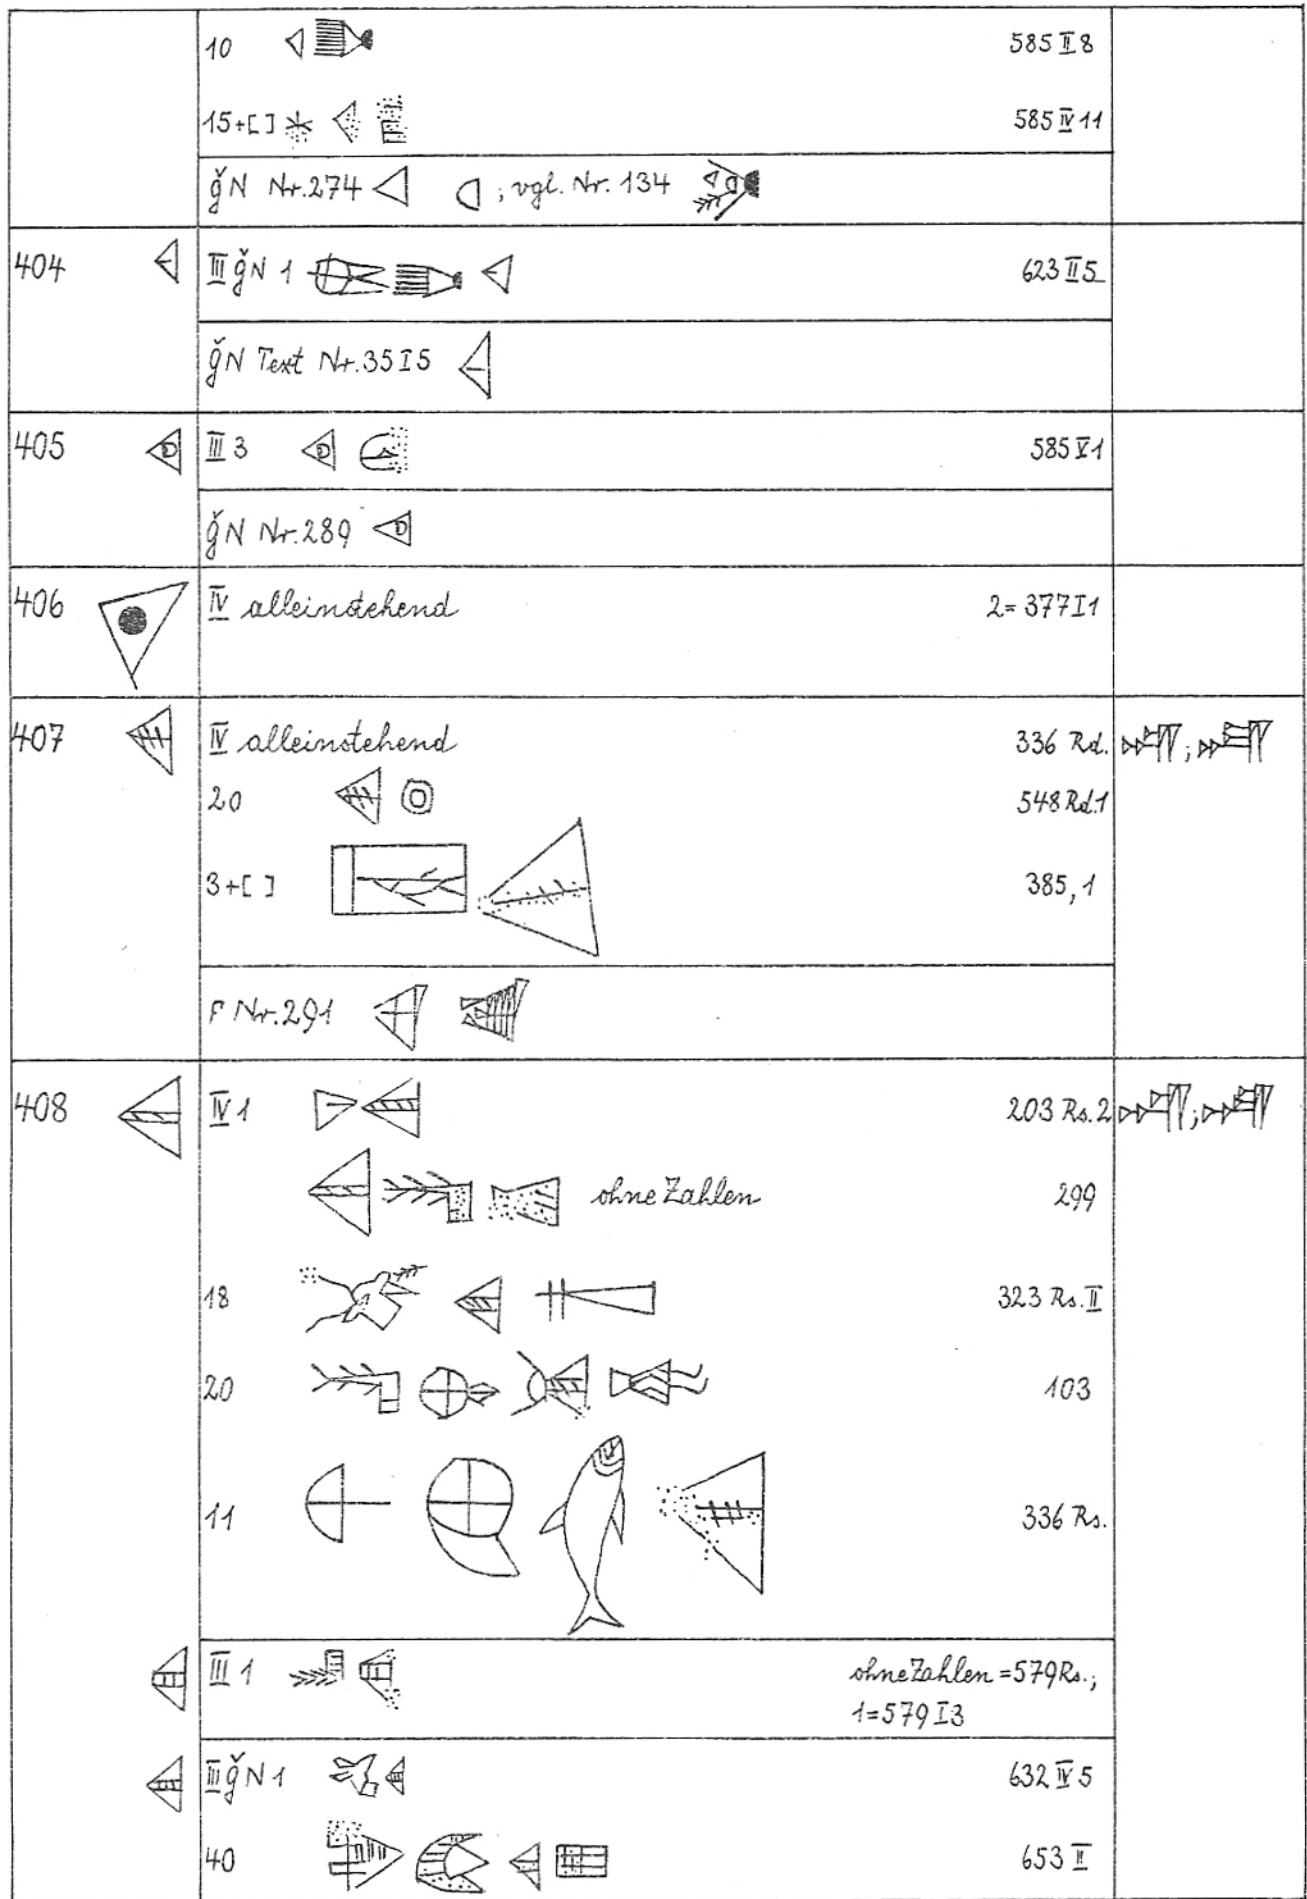 10 585 II 8
15+[ ] 585 IV 11
ǧN Nr. 274 ; vgl. Nr. 134
404 III ǧN 1 623 II 5
ǧN Text Nr. 35 I 5
405 III 3 585 V 1
ǧN Nr. 289
406 IV alleinstehend 2 = 377 I 1
407 IV alleinstehend 336 Rd. ;
20 548 Rd. 1
3+[ ] 385, 1
F Nr. 291
408 IV 1 203 Rs. 2 ;
ohne Zahlen 299
18 323 Rs. II
20 103
11 336 Rs.
III 1 ohne Zahlen = 579 Rs.;
1 = 579 I 3
III ǧN 1 632 IV 5
40 653 II